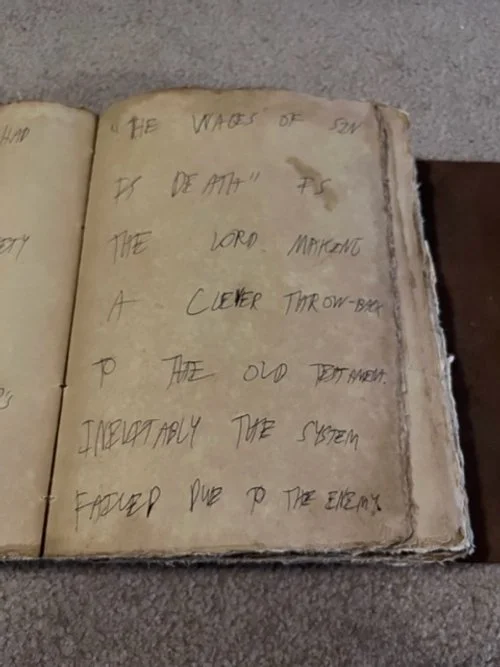 HAD
"THE WAGES OF SIN
IS DEATH" IS
THE LORD MAKING
A CLEVER THROW-BACK
TO THE OLD TESTAMENT.
INEVITABLY THE SYSTEM
FAILED DUE TO THE ENEMY.